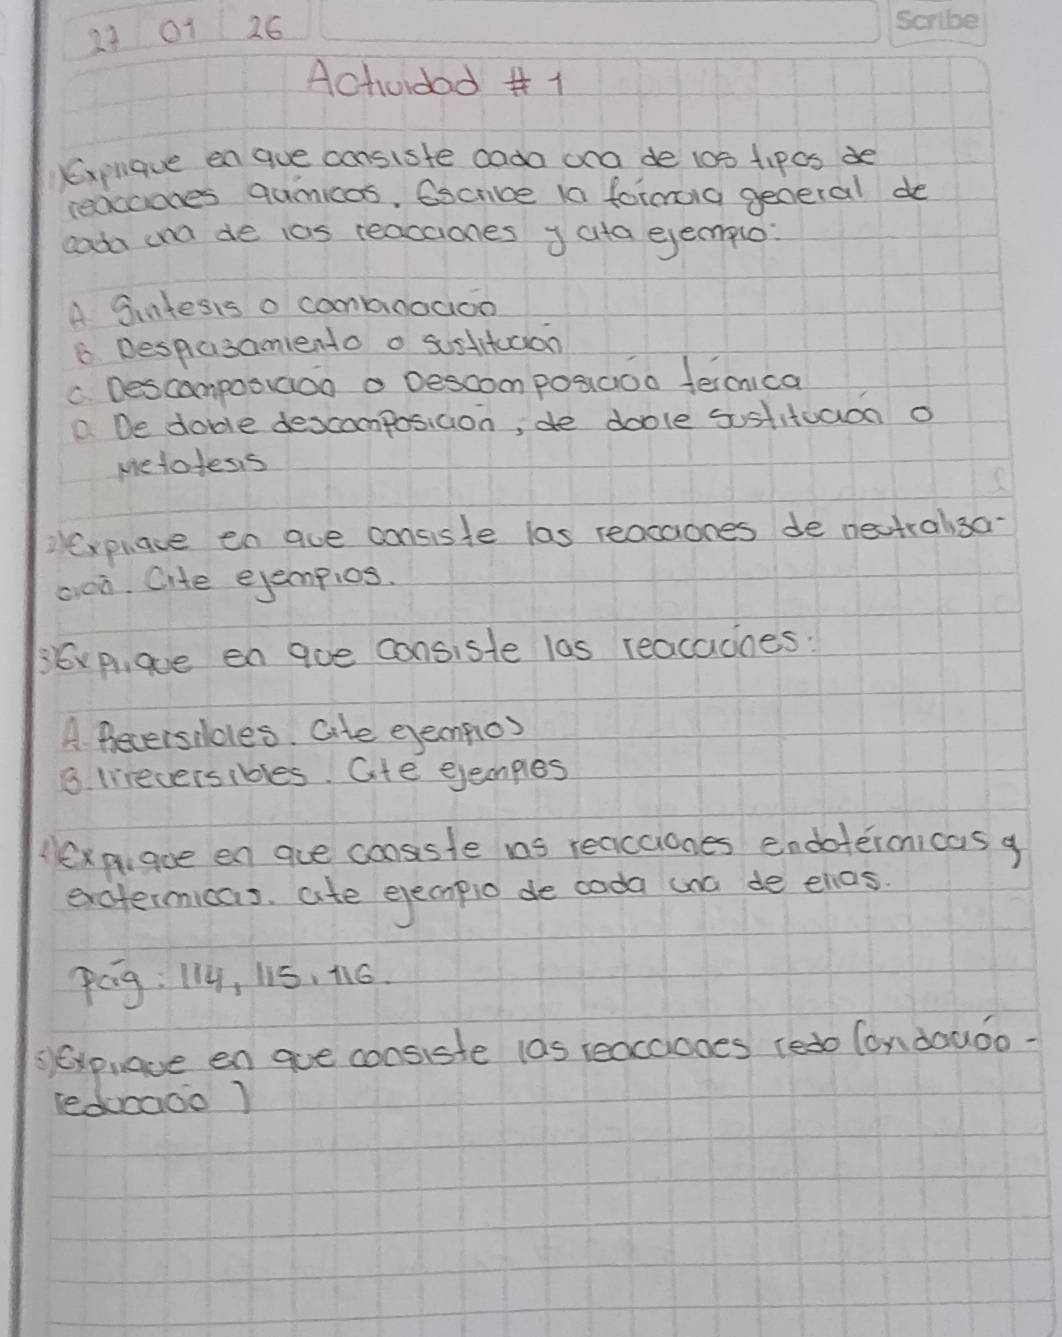 27 01 26
Scribe
Actividad # 1
1) Explique en que consiste cada una de los tipos de
reacciones químicas. Escribe la fórmula general de
cada una de las reacciones y cita ejemplo:
A Síntesis o combinación
B. Desplazamiento o sustitución
C. Descomposición o Descomposición térmica
D. De doble descomposición, de doble sustitución o
Metatesis
2) Explique en que consiste las reacciones de neutraliza-
ción. Cite ejemplos.
3) Explique en que consiste las reacciones:
A. Reversibles. Cite ejemplos
B. Irreversibles. Cite ejemplos
4) Explique en que consiste las reacciones endotérmicas y
exotermicas. cite ejemplo de cada una de ellas.
Pág: 114, 115, 116.
5) Explique en que consiste las reacciones redo (oxidación-
reducción)